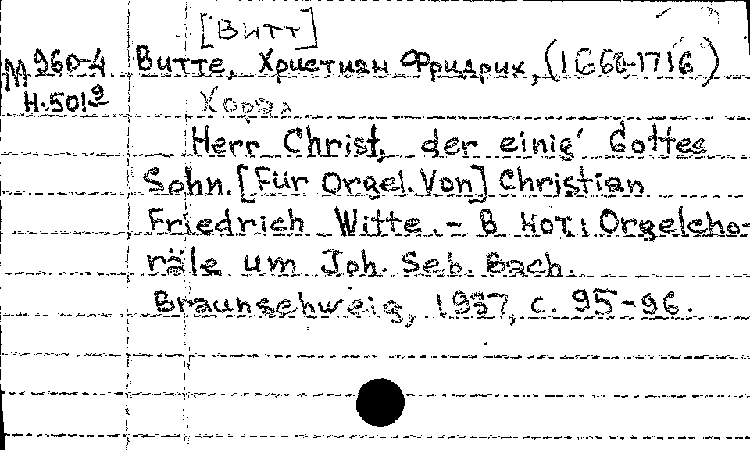 [Витт]
М 960-4 Витте, Христиан Фридрих, (1660-1716)
Н.5019 Хорал
Herr Christ, der einig' Gottes
Sohn. [Für Orgel. Von] Christian
Friedrich Witte. - В нот.: Orgelcho-
räle um Joh. Seb. Bach.
Braunschweig, 1937, с. 95-96.